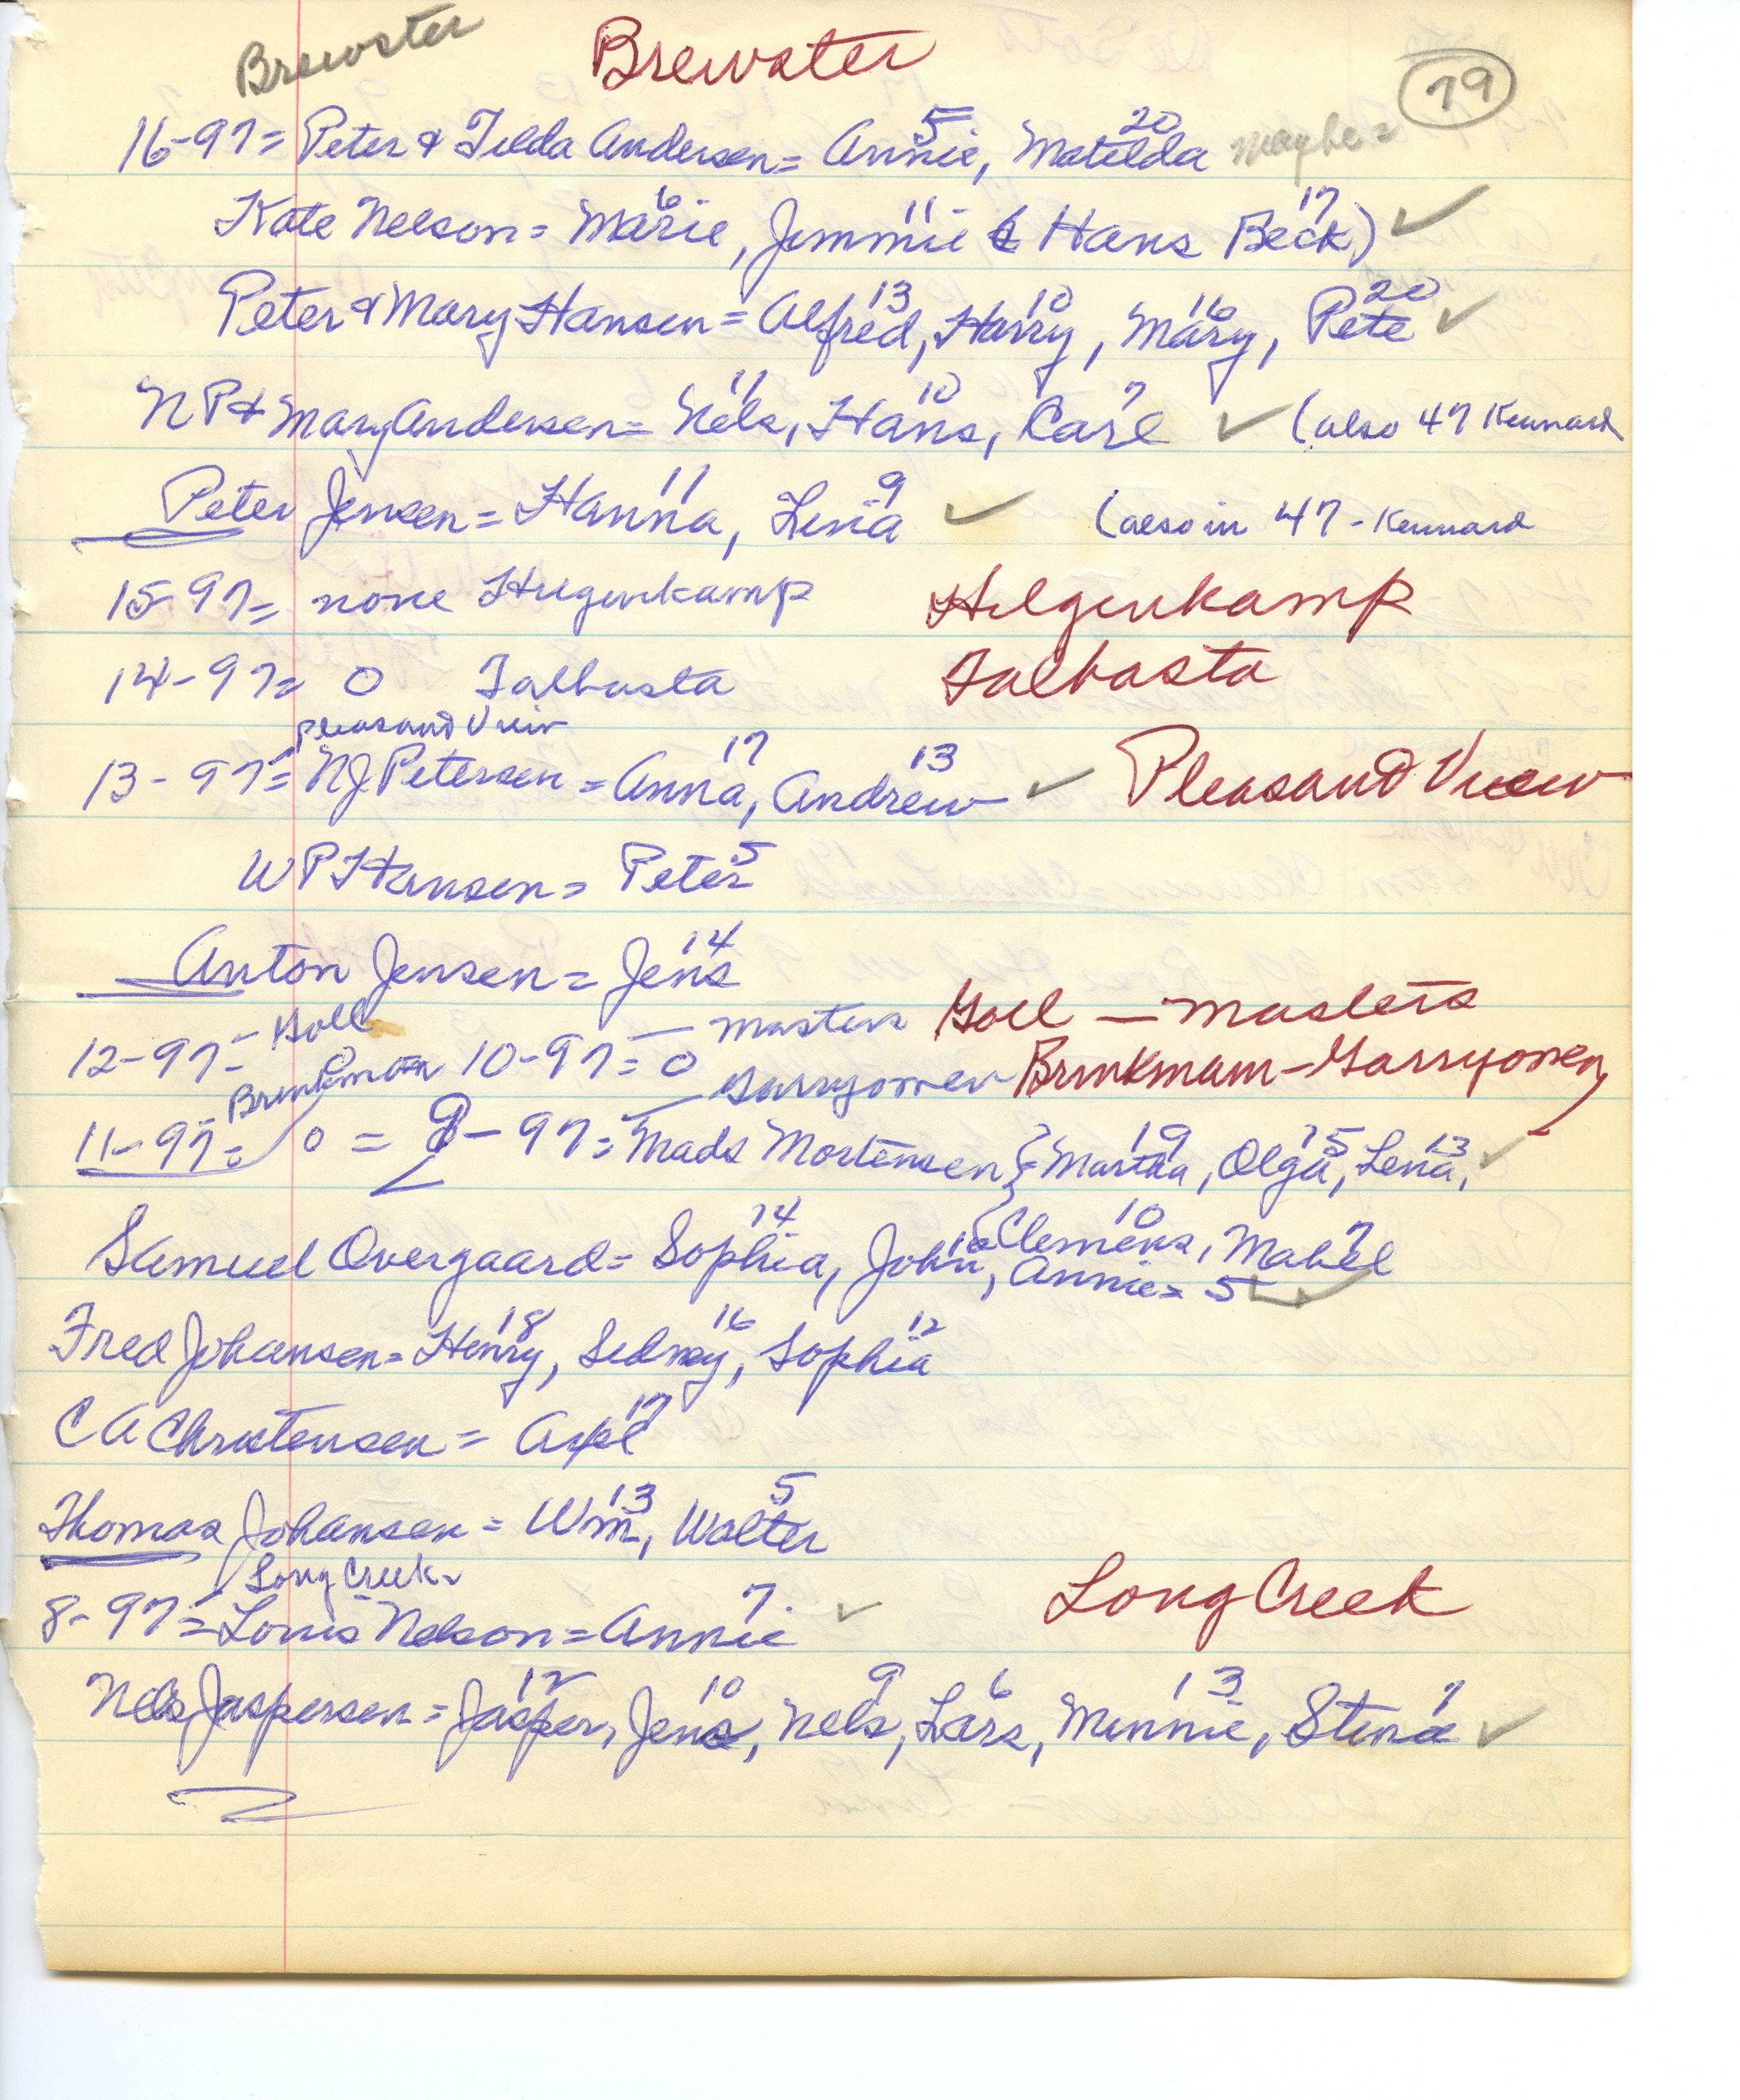 Brewster Brewster 79
5 20
16-97= Peter & Tilda Andersen= Annie, Matilda maybe=
6 11 17
Kate Nelson= Marie, Jemmie & Hans Beck) ✓
13 10 16 20
Peter & Mary Hansen= Alfred, Harry, Mary, Pete ✓
11 10 7
N P & Mary Andersen= Nels, Hans, Carl ✓ (also 47 Kennard
11 9
Peter Jensen= Hanna, Lena ✓ (also in 47-Kennard
15-97= none Hilgenkamp Hilgenkamp
14-97= 0 Talbasta Talbasta
Pleasand View
17 13
13-97= NJ Petersen= Anna, Andrew ✓ Pleasand View
5
W P Hansen= Peter
14
Anton Jensen= Jens
12-97- Goll 10-97=0 — Masters Goll — Masters
Brinkman Garryowen Brinkmam-Garryowen
19 15 13
11-97= 0 = 9-97= Mads Mortensen { Martha, Olga, Lena, ✓
10 7
Clemens, Mabel
14
Samuel Overgaard= Sophia, John, Annie= 5 ✓
18 16 12
Fred Johansen= Henry, Sidney, Sophia
17
C A Christensen= Axel
13 5
Thomas Johansen= Wm, Walter
Long Creek
7
8-97= Louis Nelson= Annie ✓ Long Creek
12 10 9 6 13 7
Nels Jaspersen= Jasper, Jens, Nels, Lars, Minnie, Stina ✓